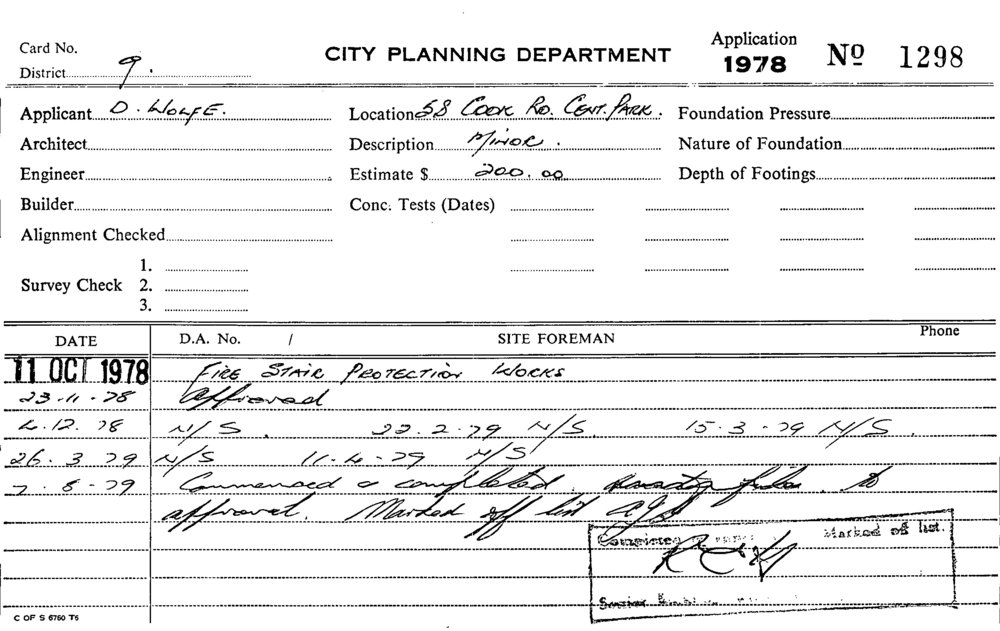 Card No.
CITY PLANNING DEPARTMENT
Application
1978
Nº 1298
District 9.
Applicant D. WOLFE.
Location 58 COOK RD. CENT. PARK.
Foundation Pressure
Architect
Description MINOR.
Nature of Foundation
Engineer
Estimate $ 200.00
Depth of Footings
Builder
Conc. Tests (Dates)
Alignment Checked
Survey Check
1.
2.
3.
DATE
D.A. No. /
SITE FOREMAN
Phone
11 OCT 1978 FIRE STAIR PROTECTION WORKS
23.11.78 Approved
4.12.78 N/S. 22.2.79 N/S. 15.3.79 N/S.
26.3.79 N/S 11.4.79 N/S
7.8.79 Commenced & completed. to
approval. Marked off list
Completed Marked off list.
Senior
C OF S 6760 T6